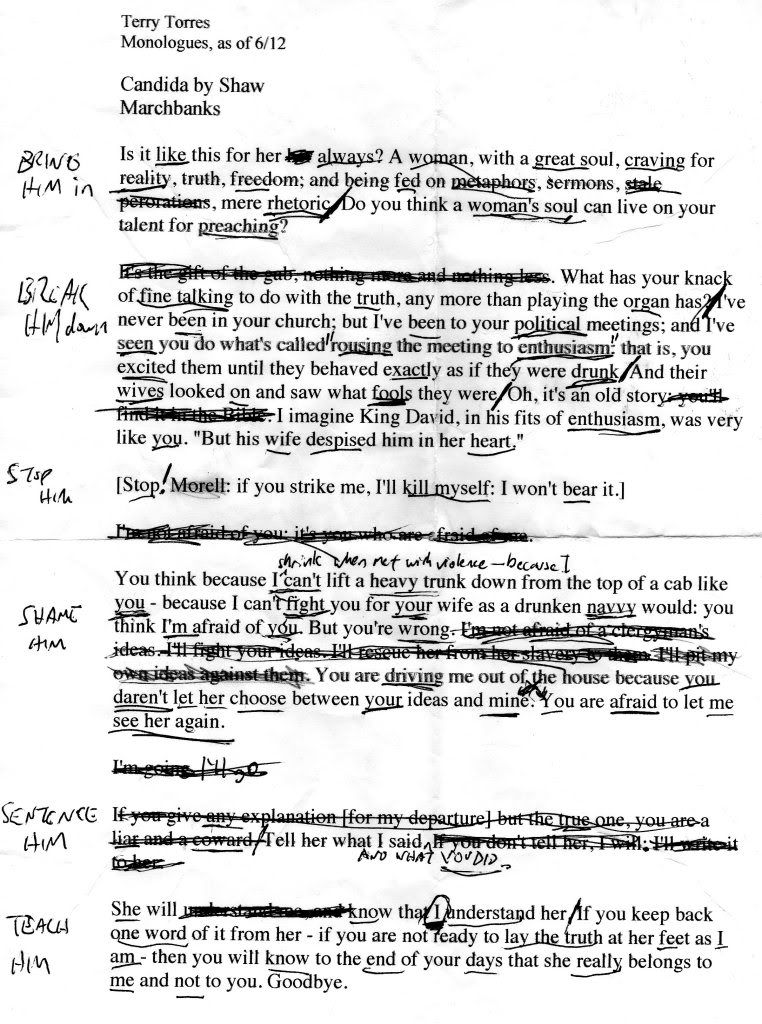 Terry Torres
Monologues, as of 6/12
Candida by Shaw
Marchbanks
BRING
HIM in
Is it like this for her always? A woman, with a great soul, craving for
reality, truth, freedom; and being fed on metaphors, sermons, stale
perorations, mere rhetoric. Do you think a woman's soul can live on your
talent for preaching?
BREAK
HIM down
It's the gift of the gab, nothing more and nothing less. What has your knack
of fine talking to do with the truth, any more than playing the organ has? I've
never been in your church; but I've been to your political meetings; and I've
seen you do what's called "rousing the meeting to enthusiasm:" that is, you
excited them until they behaved exactly as if they were drunk. And their
wives looked on and saw what fools they were. Oh, it's an old story: you'll
find it in the Bible. I imagine King David, in his fits of enthusiasm, was very
like you. "But his wife despised him in her heart."
STOP
HIM
[Stop! Morell: if you strike me, I'll kill myself: I won't bear it.]
I'm not afraid of you: it's you who are afraid of me.
shrink when met with violence - because I
SHAME
HIM
You think because I can't lift a heavy trunk down from the top of a cab like
you - because I can't fight you for your wife as a drunken navvy would: you
think I'm afraid of you. But you're wrong. I'm not afraid of a clergyman's
ideas. I'll fight your ideas. I'll rescue her from her slavery to them. I'll pit my
own ideas against them. You are driving me out of the house because you
daren't let her choose between your ideas and mine. You are afraid to let me
see her again.
I'm going I'll go
SENTENCE
HIM
If you give any explanation [for my departure] but the true one, you are a
liar and a coward. Tell her what I said. If you don't tell her, I will: I'll write it
to her.
AND WHAT YOU DID.
TEACH
HIM
She will understand me, and know that I understand her. If you keep back
one word of it from her - if you are not ready to lay the truth at her feet as I
am - then you will know to the end of your days that she really belongs to
me and not to you. Goodbye.